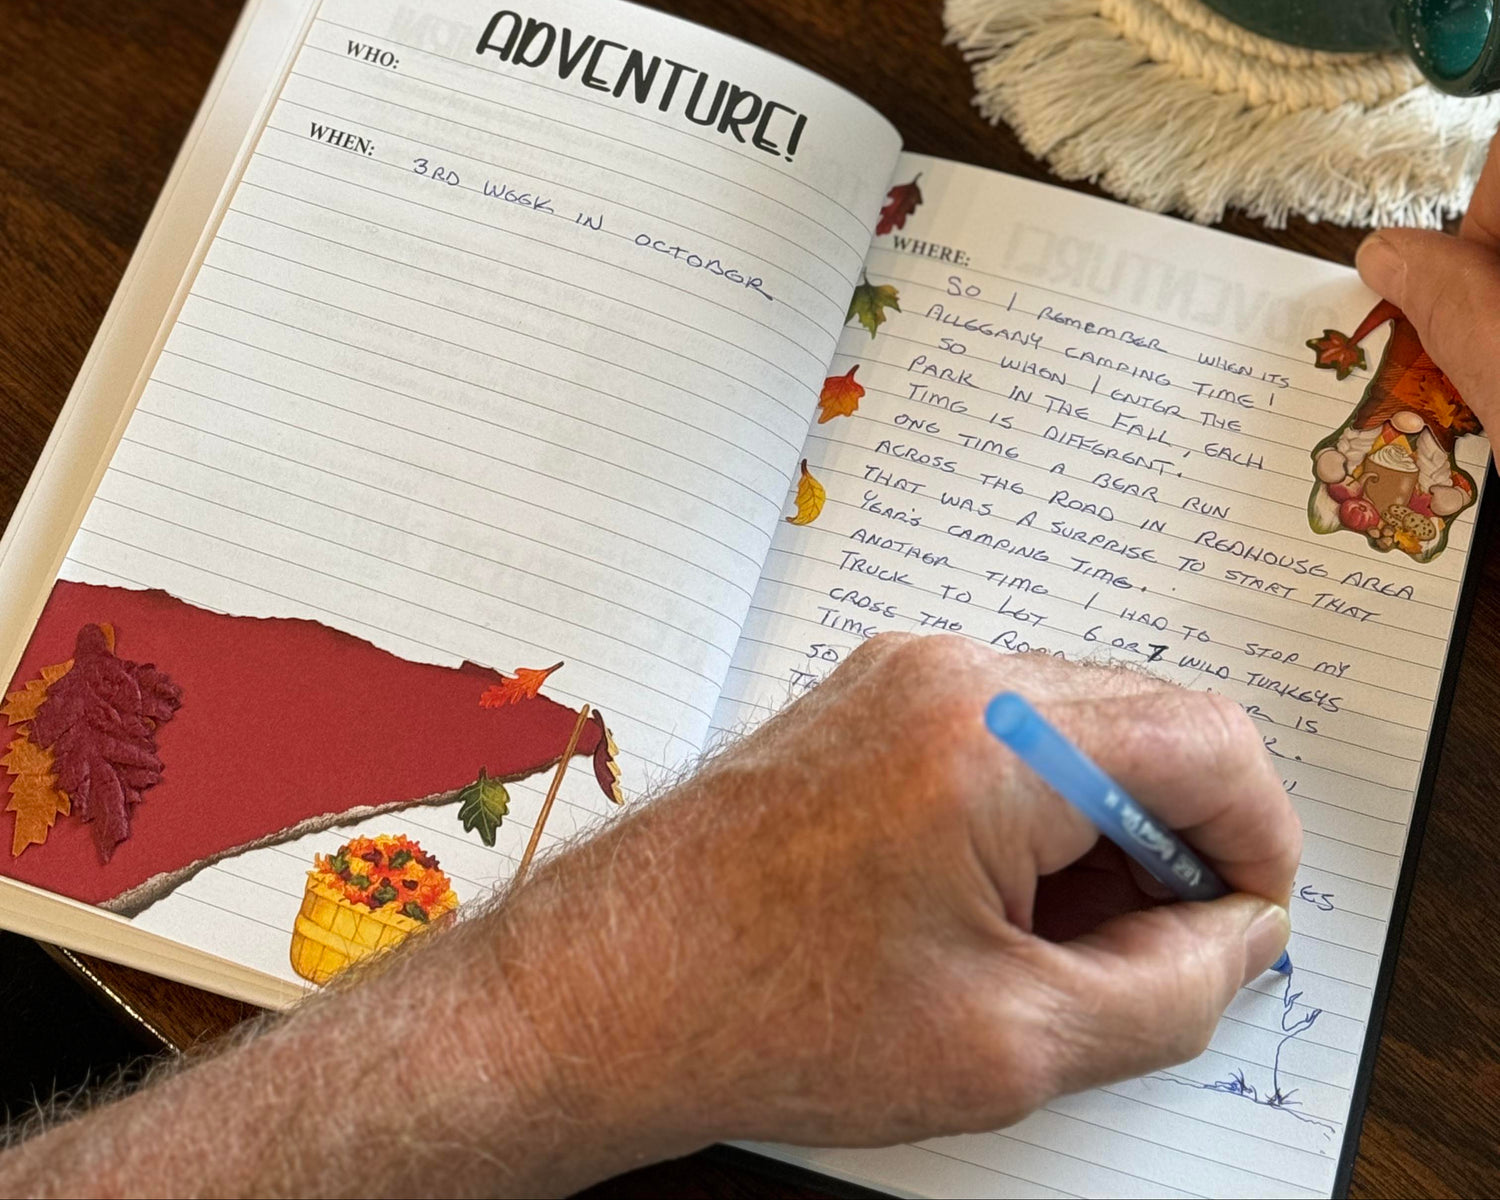 ADVENTURE!
WHO:
WHEN:
3RD WEEK IN OCTOBER
WHERE:
SO I REMEMBER WHEN ITS
ALLEGANY CAMPING TIME!
SO WHEN I ENTER THE
PARK IN THE FALL, EACH
TIME IS DIFFERENT.
ONE TIME A BEAR RUN
ACROSS THE ROAD IN REDHOUSE AREA
THAT WAS A SURPRISE TO START THAT
YEAR'S CAMPING TIME.
ANOTHER TIME I HAD TO STOP MY
TRUCK TO LET 6 OR 7 WILD TURKEYS
CROSE THE ROAD
TIME IS
SO